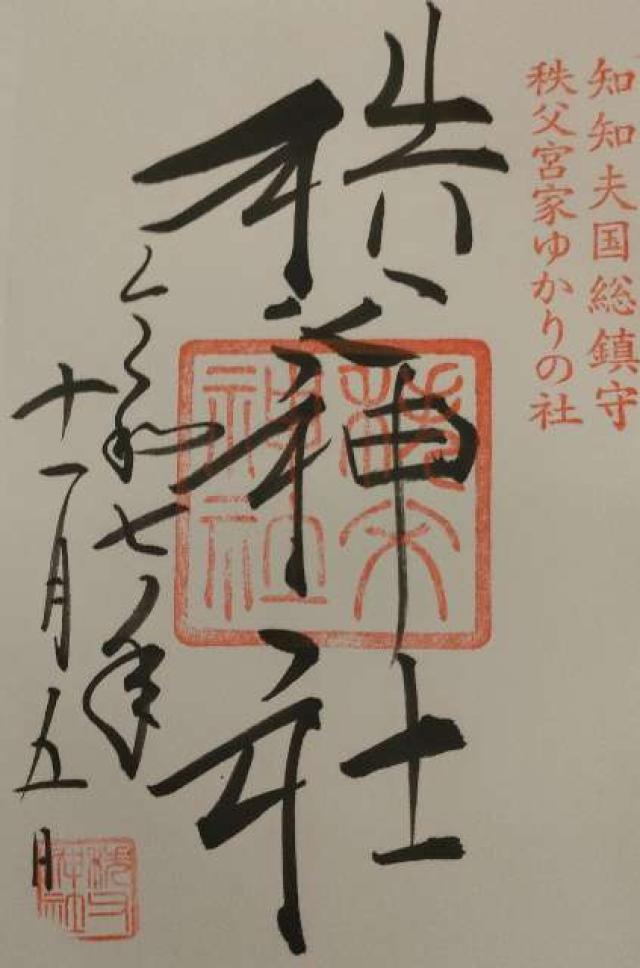 知知夫国総鎮守
秩父宮家ゆかりの社
秩父神社
秩父神社
令和七年
十一月五日
秩父神社